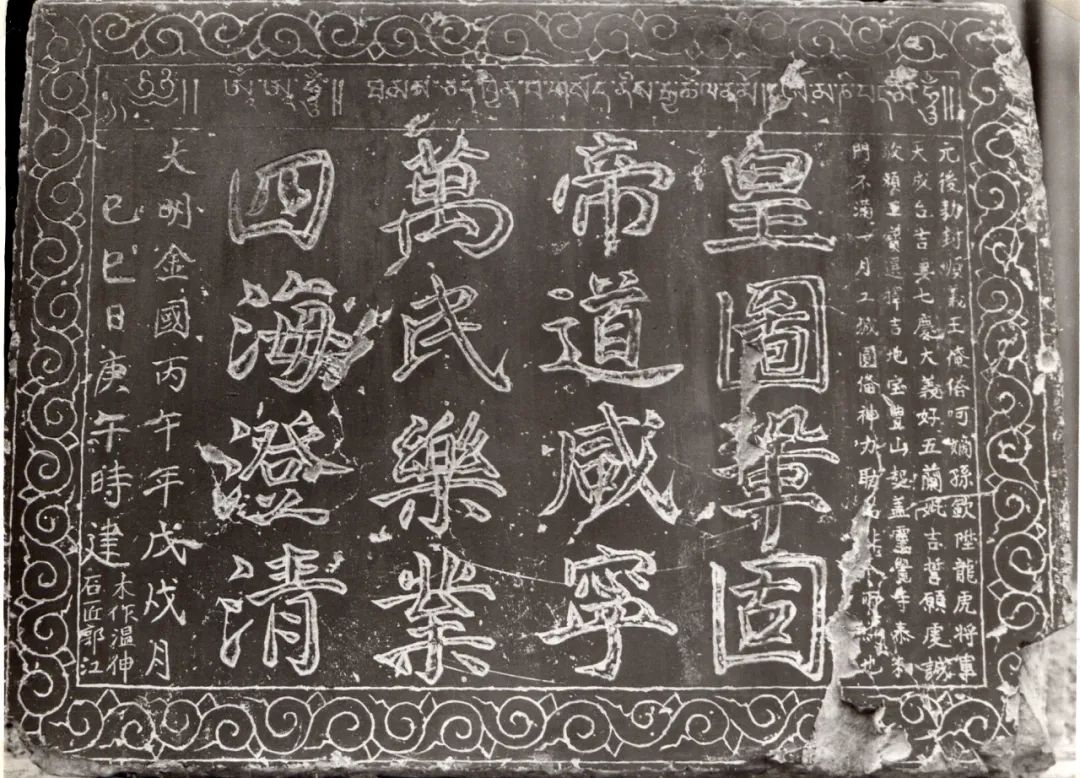 ༄༅།། ཨོཾ་ཨཱཿཧཱུྃ།། ཨོཾ་མ་ཎི་པདྨེ་ཧཱུྃ།།
元後勑封順義王俺答呵嫡孫欽陞龍虎将軍
天成台吉妻七慶大義好五蘭妣吉誓願虔誠
敬賴三寶選擇吉地宝豐山起盖靈覺寺泰和
門不滿一月工城圓俻神力助 也
皇圖鞏固
帝道咸寧
萬民樂業
四海澄清
大明金國丙午年戊戌月
己巳日庚午時建
木作温伸
石匠郭江